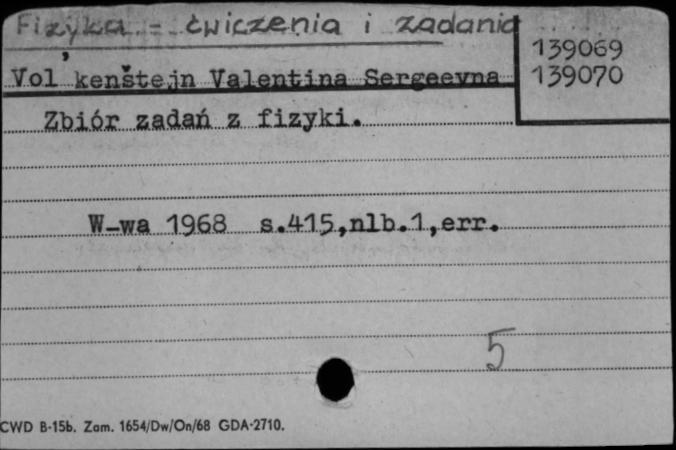 Fizyka - ćwiczenia i zadania
139069
139070
Vol'kenštejn Valentina Sergeevna
Zbiór zadań z fizyki.
W-wa 1968 s.415,nlb.1,err.
5
CWD B-15b. Zam. 1654/Dw/On/68 GDA-2710.